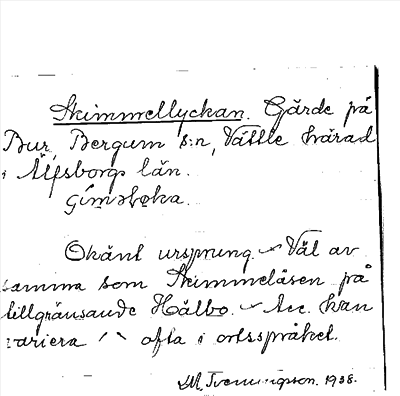 Skimmellyckan. Gärde på
Bur, Bergum s:n, Vättle härad
i Älfsborgs län.
Okänt ursprung. – Väl av
samma som Skimmelåsen på
tillgränsande Hålbo. – Acc. kan
variera ofta i ortsspråket.
M. Tvenningson. 1938.